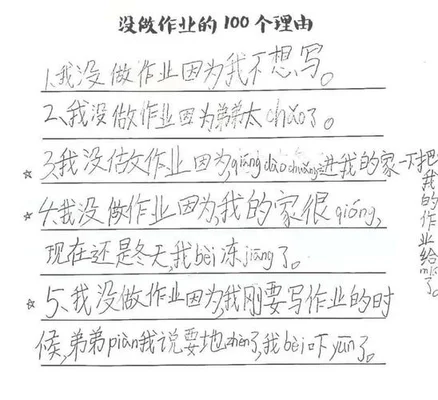 没做作业的100个理由
1.我没做作业因为我不想写。
2.我没做作业因为弟弟太chǎo了。
☆3.我没做作业因为,qiáng dào chuǎng进我的家一下把
我的作业给
了。
☆4.我没做作业因为,我的家很qióng,
现在还是冬天,我bèi冻jiāng了。
☆5.我没做作业因为,我刚要写作业的时
候,弟弟piàn我说要地zhèn了,我bèi吓yūn了。